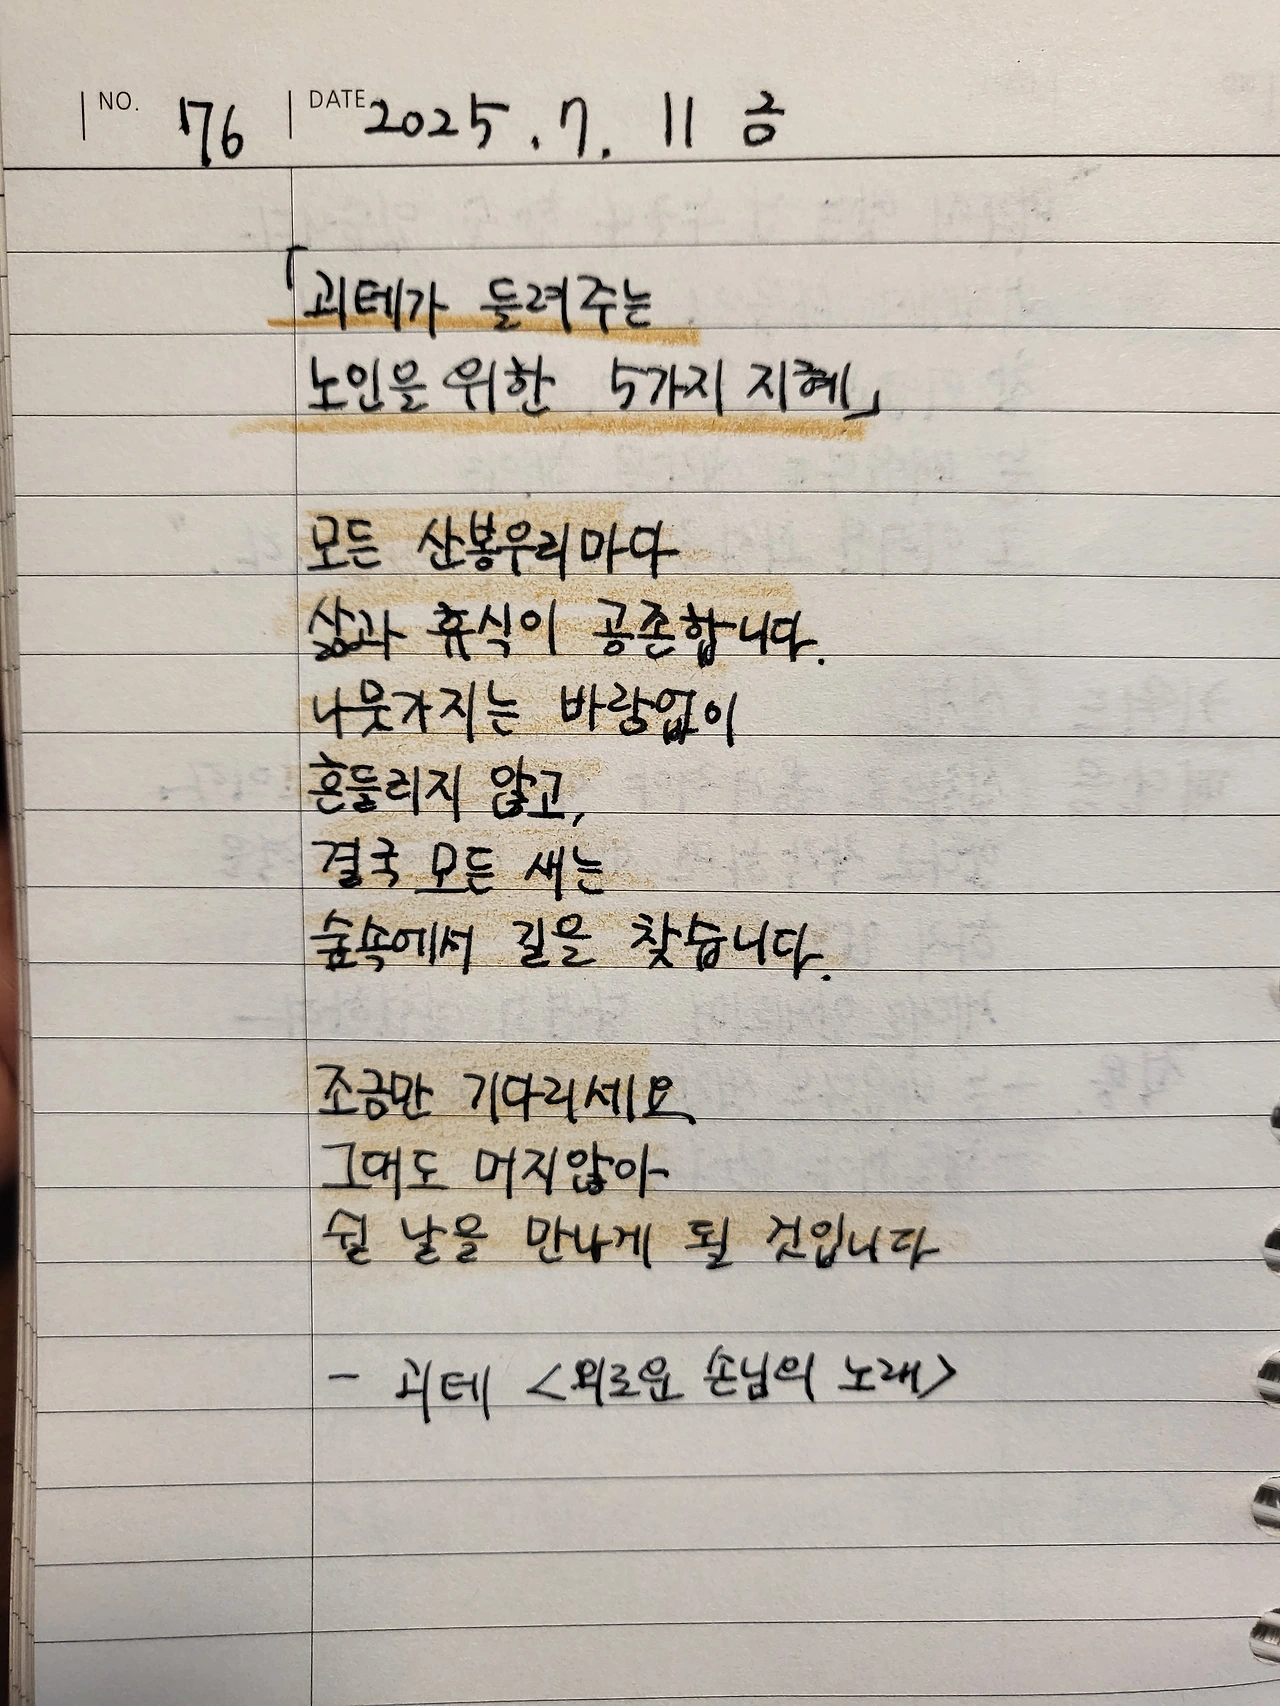 NO. 76 DATE 2025. 7. 11 금
「괴테가 들려주는
노인을 위한 5가지 지혜」
모든 산봉우리마다
삶과 휴식이 공존합니다.
나뭇가지는 바람없이
흔들리지 않고,
결국 모든 새는
숲속에서 길을 찾습니다.
조금만 기다리세요,
그대도 머지않아
쉴 날을 만나게 될 것입니다
- 괴테 <외로운 손님의 노래>